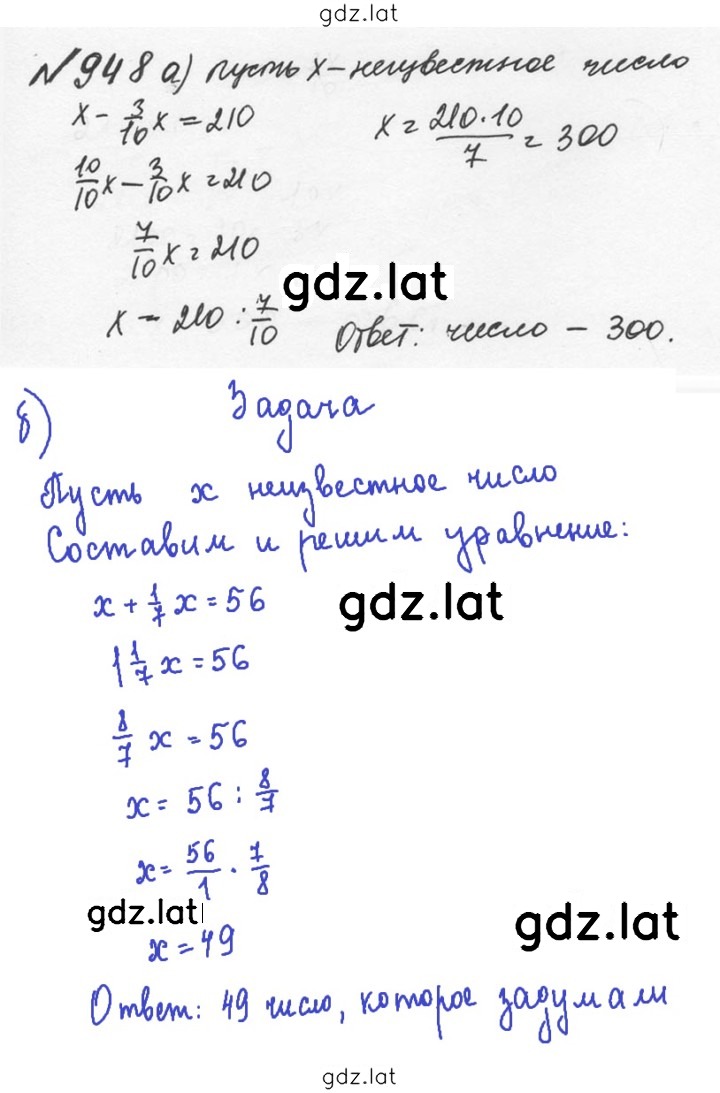 gdz.lat
№948 а) пусть х – неизвестное число
x - 3/10 x = 210
10/10 x - 3/10 x = 210
7/10 x = 210
x = 210 : 7/10
x = 210·10/7 = 300
gdz.lat
Ответ: число – 300.
б) Задача
Пусть x неизвестное число
Составим и решим уравнение:
x + 1/7 x = 56
gdz.lat
1 1/7 x = 56
8/7 x = 56
x = 56 : 8/7
x = 56/1 · 7/8
gdz.lat
gdz.lat
x = 49
Ответ: 49 число, которое задумали
gdz.lat